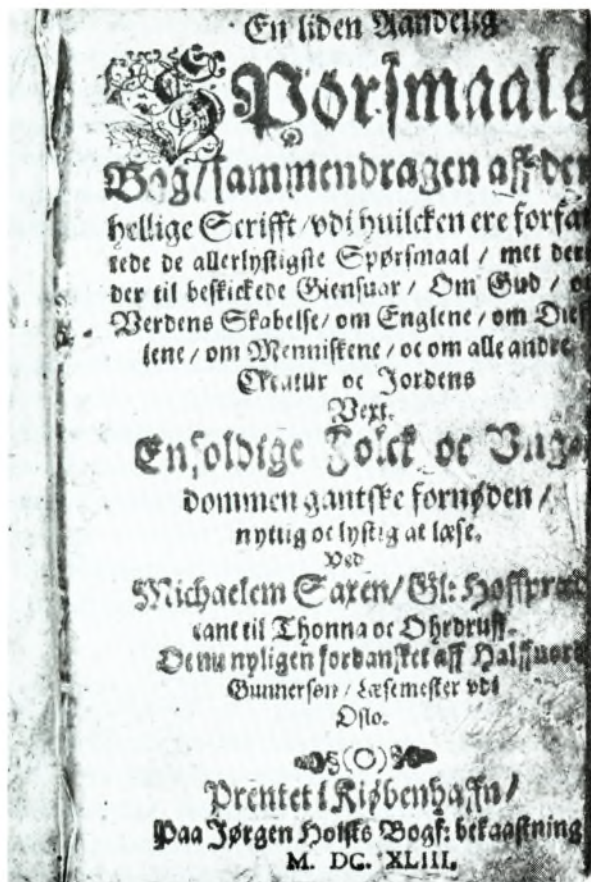 En liden Aandelig
Spørsmaals
Bog/sammendragen aff den
hellige Scrifft/vdi huilcken ere forfat
tede de allerlystigste Spørsmaal / met der
der til beskickede Giensuar / Om Gud / oc
Verdens Skabelse/om Englene/om Dieff
lene/om Menniskene/oc om alle andre
Creatur oc Jordens
Vext.
Enfoldige Folck oc Vnge
dommen gantske fornøden /
nyttig oc lystig at læse.
Ved
Michaelem Saxen/Gl: Hoffpræd
cant til Thonna oc Ohrdruff.
Oc nu nyligen fordansket aff Halfuord
Gunnersøn / Læsemester vdi
Oslo.
Prentet i Kiøbenhaffn/
Paa Jørgen Holsts Bogf: bekaastning
M. DC. XLIII.